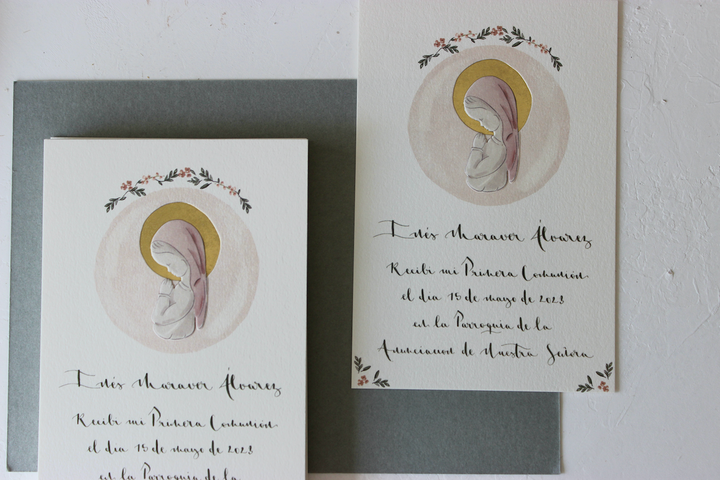 Inés Maraver Álvarez
Recibí mi Primera Comunión
el día 15 de mayo de 2023
en la Parroquia de la
Anunciación de Nuestra Señora
Inés Maraver Álvarez
Recibí mi Primera Comunión
el día 15 de mayo de 2023
en la Parroquia de la